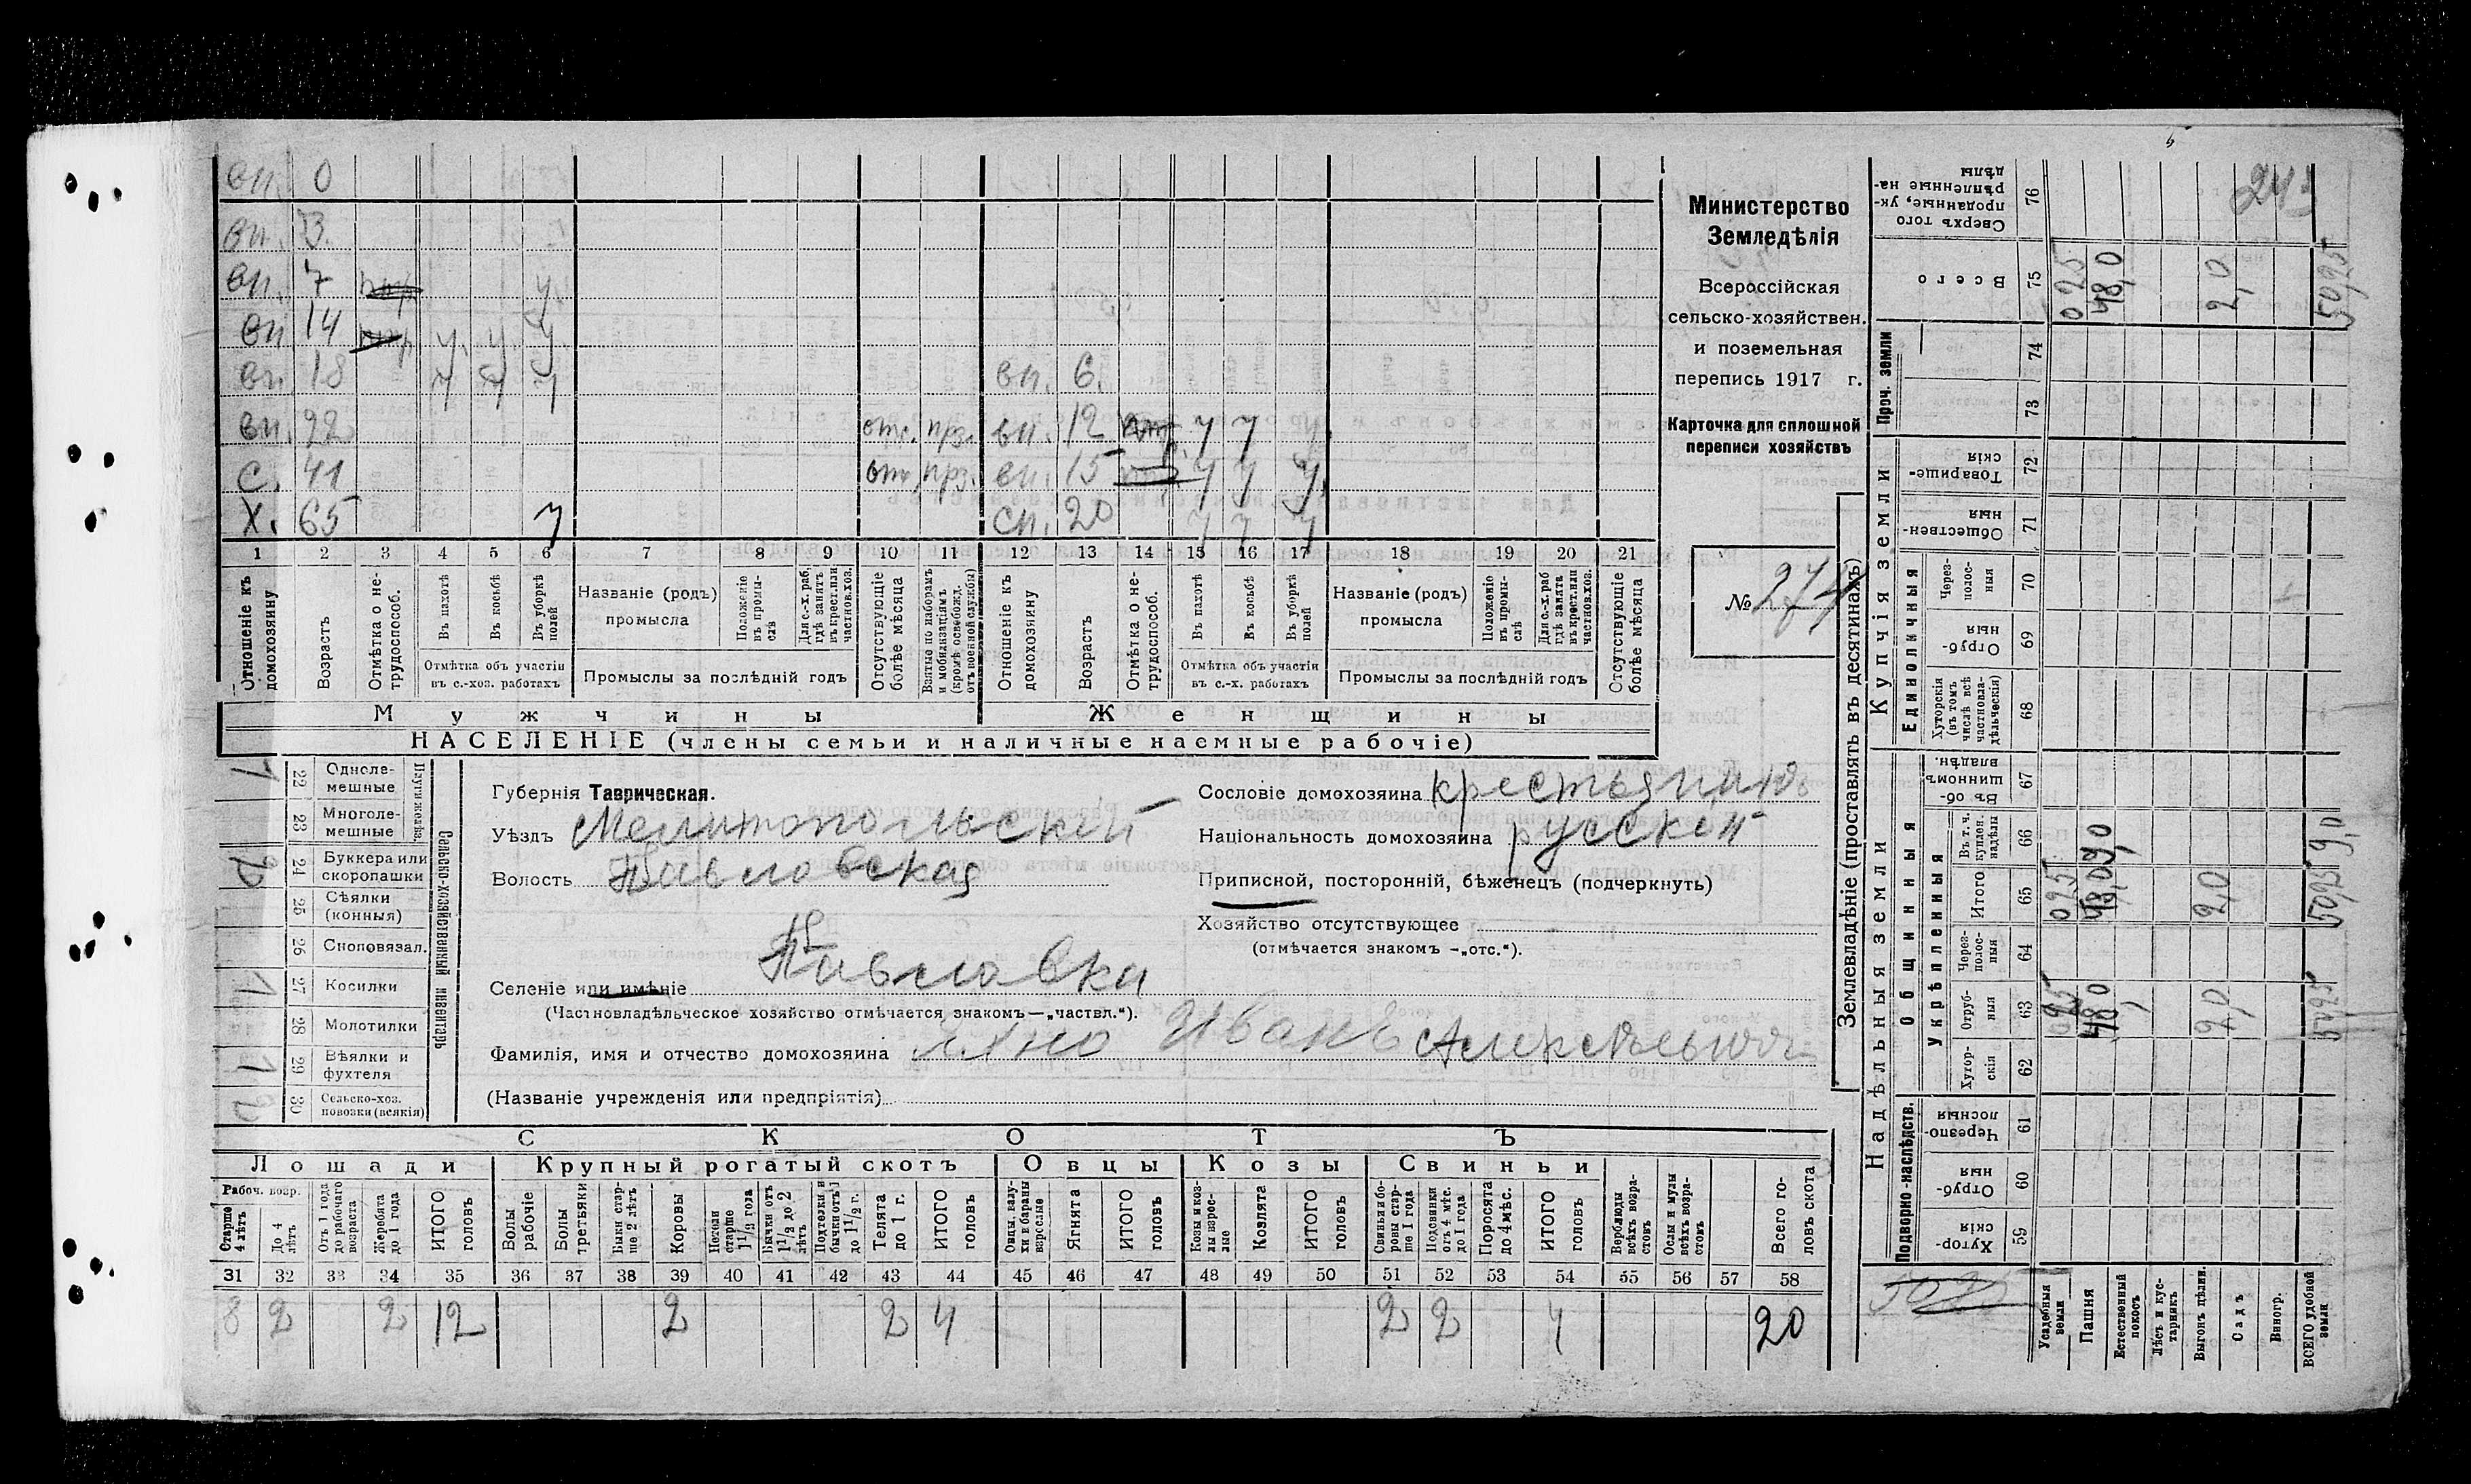 вн. 0
вн. 3.
вн. 7 у.
вн 14 у. у. у.
вн. 18 у у у вн. 6.
вн. 22 отс. прз. вн. 12 у у у.
с. 41 отс. прз. вн. 15 у у у.
х. 65 у сн. 20 у у у
1 2 3 4 5 6 7 8 9 10 11 12 13 14 15 16 17 18 19 20 21
Отношеніе къ домохозяину
Возрастъ
Отмѣтка о не-трудоспособ.
Въ пахотѣ
Въ косьбѣ
Въ уборкѣ полей
Отмѣтка объ участіи въ с.-хоз. работахъ
Названіе (родъ) промысла
Положеніе въ промы-слѣ
Для с.-х. раб. гдѣ занятъ въ крест. или частнов. хоз.
Промыслы за послѣдній годъ
Отсутствующіе болѣе мѣсяца
Взятые по наборамъ и мобилизаціямъ (кромѣ освобожд. отъ военной службы)
Отношеніе къ домохозяину
Возрастъ
Отмѣтка о не-трудоспособ.
Въ пахотѣ
Въ косьбѣ
Въ уборкѣ полей
Отмѣтка объ участіи въ с.-х. работахъ
Названіе (родъ) промысла
Положеніе въ промы-слѣ
Для с.-х. раб гдѣ занята въ крест. или частнов. хоз.
Промыслы за послѣдній годъ
Отсутствующіе болѣе мѣсяца
Мужчины Женщины
НАСЕЛЕНІЕ (члены семьи и наличные наемные рабочіе)
Министерство
Земледѣлія
Всероссійская
сельско-хозяйствен.
и поземельная
перепись 1917 г.
Карточка для сплошной
переписи хозяйствъ
№ 274
Сельско-хозяйственный инвентарь
22 Однолемешные 1
23 Многолемешные
24 Буккера или скоропашки 2
25 Сѣялки (конныя)
26 Сноповязал.
27 Косилки 1
28 Молотилки
29 Вѣялки и фухтеля 1
30 Сельско-хоз. повозки (всякія) 2
Губернія Таврическая.
Уѣздъ Мелитопольскій
Волость Павловская
Селеніе или имѣніе Павловка
(Частновладѣльческое хозяйство отмѣчается знакомъ—„частвл.“).
Фамилія, имя и отчество домохозяина Иванъ Алексѣевичъ
(Названіе учрежденія или предпріятія)
Сословіе домохозяина крестьянинъ
Національность домохозяина русскій
Приписной, посторонній, бѣженецъ (подчеркнуть)
Хозяйство отсутствующее
(отмѣчается знакомъ —„отс.“).
СКОТЪ
Лошади Крупный рогатый скотъ Овцы Козы Свиньи
Рабоч. возр.
Старше 4 лѣтъ
До 4 лѣтъ
Отъ 1 года до рабочаго возраста
Жеребята до 1 года
ИТОГО головъ
Волы рабочіе
Волы третьяки
Быки старше 2 лѣтъ
Коровы
Нетели старше 1½ года
Бычки отъ 1½ до 2 лѣтъ
Подтелки и бычки отъ 1 до 1½ г.
Телята до 1 г.
ИТОГО головъ
Овцы, валухи и бараны взрослые
Ягнята
ИТОГО головъ
Козы и козлы взрослые
Козлята
ИТОГО головъ
Свиньи и боровы старше 1 года
Подсвинки отъ 4 мѣс. до 1 года
Поросята до 4 мѣс.
ИТОГО головъ
Верблюды всѣхъ возрастовъ
Ослы и мулы всѣхъ возрастовъ
Всего головъ скота
31 32 33 34 35 36 37 38 39 40 41 42 43 44 45 46 47 48 49 50 51 52 53 54 55 56 57 58
8 2 2 12 2 2 4 2 2 4 20
Землевладѣніе (проставлять въ десятинахъ)
Надѣльныя земли
Купчія земли
Проч. земли
Подворно-наслѣдств.
Общинныя
Укрѣпленныя
Единоличныя
59 Хуторскія
60 Отрубныя
61 Черезполосныя
62 Хуторскія
63 Отрубныя 0,25 48,0 2,0 50,25
64 Черезполосныя
65 Итого 0,25 48,0 2,0 50,25
66 Въ т. ч. куплен. надѣлы 9,0 9,0
67 Въ общинномъ владѣн.
68 Хуторскія (въ томъ числѣ всѣ частновладѣльческія)
69 Отрубныя
70 Черезполосныя
71 Общественныя
72 Товарищескія
73
74
75 Всего 0,25 48,0 2,0 50,25
76 Сверхъ того проданные, укрѣпленные надѣлы
Усадебныя земли
Пашня
Естественный покосъ
Лѣсъ и кустарникъ
Выгонъ цѣлин.
Садъ
Виногр.
ВСЕГО удобной земли